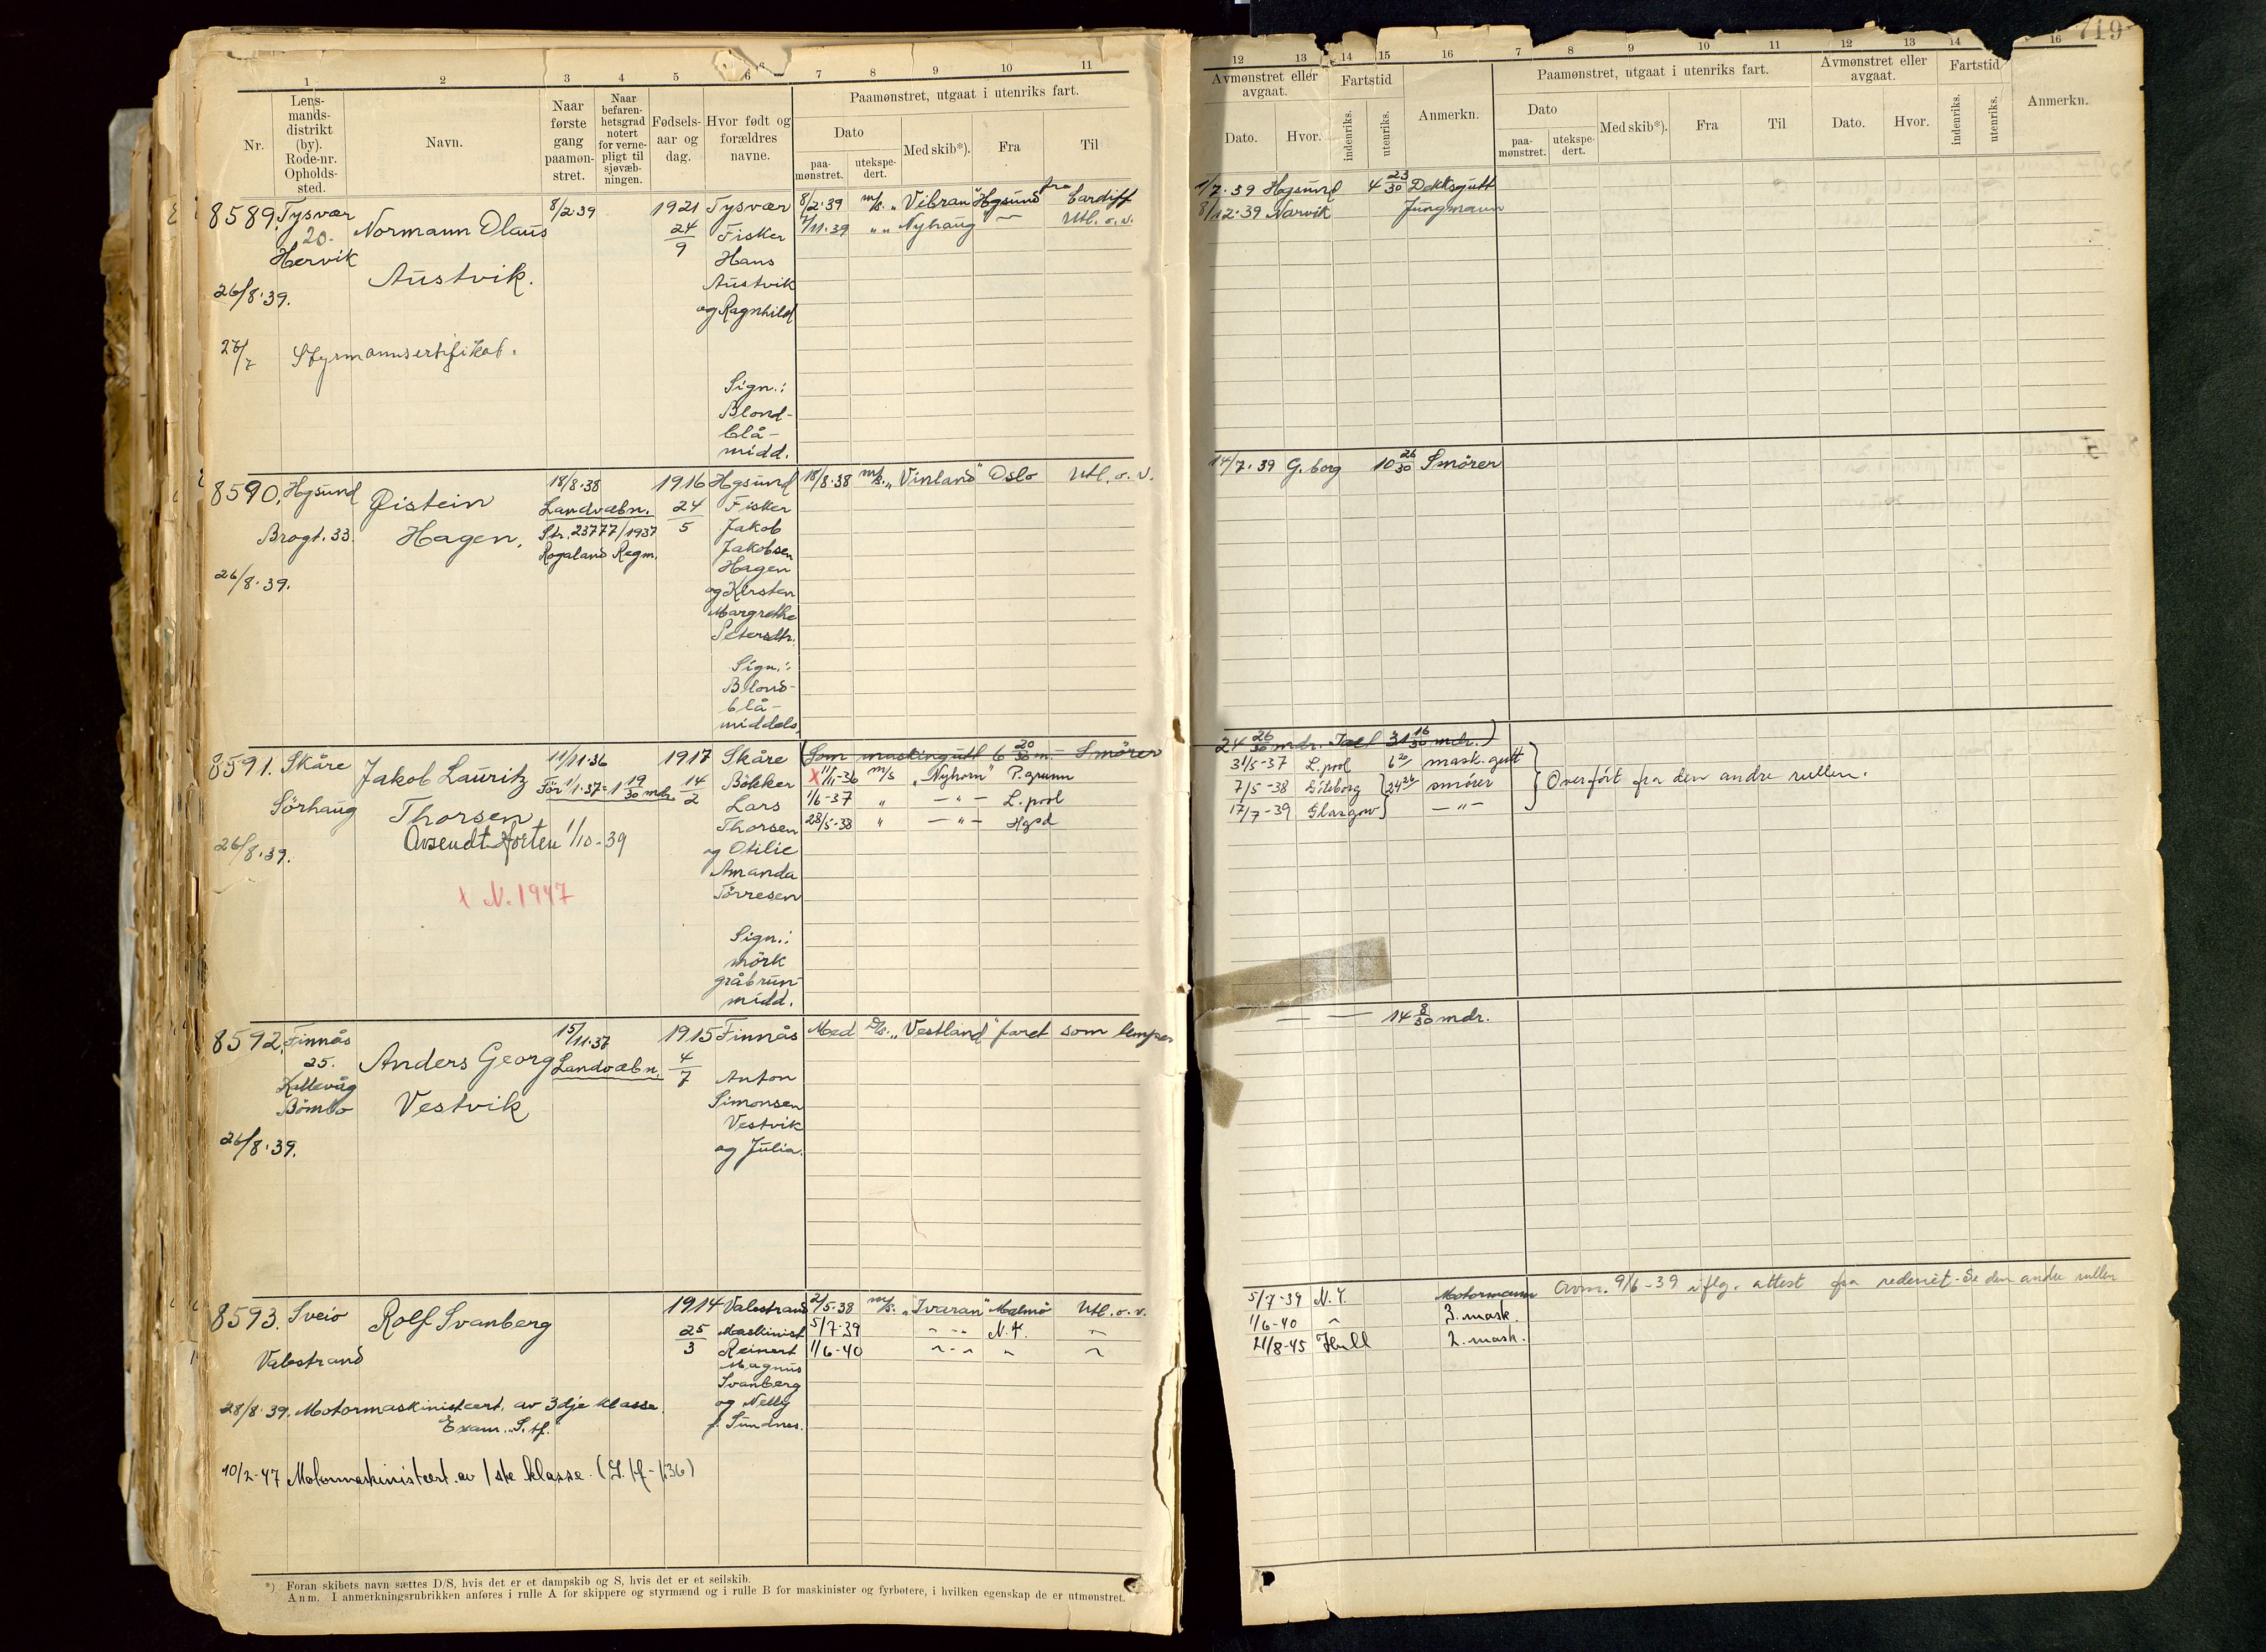 719
1 2 3 4 5 6 7 8 9 10 11
12 13 14 15 16 7 8 9 10 11 12 13 14 16
Nr.
Lens-
mands-
distrikt
(by).
Rode-nr.
Opholds-
sted.
Navn.
Naar
første
gang
paamøn-
stret.
Naar
befaren-
hetsgrad
notert
for verne-
pligt til
sjøvæb-
ningen.
Fødsels-
aar og
dag.
Hvor født og
forældres
navne.
Paamønstret, utgaat i utenriks fart.
Dato
paa-
mønstret.
utekspe-
dert.
Med skib*).
Fra
Til
Avmønstret eller
avgaat.
Dato.
Hvor.
Fartstid
indenriks.
utenriks.
Anmerkn.
Paamønstret, utgaat i utenriks fart.
Dato
paa-
mønstret.
utekspe-
dert.
Med skib*).
Fra
Til
Avmønstret eller
avgaat.
Dato.
Hvor.
Fartstid
indenriks.
utenriks.
Anmerkn.
8589. Tysvær
20.
Hervik
26/8.39.
Normann Olaus
Austvik.
8/2.39
1921
24
9
Tysvær
Fisker
Hans
Austvik
og Ragnhild
8/2.39 m/s. „Vibran" Hgsund fra Cardiff
7/11.39 „ „ Nyhaug — Utl. o. v.
1/7.39 Hgsund 4 23/30 Dekksgutt
8/12.39 Narvik Jungmann
Styrmannsertifikat.
Sign.:
Blond-
blå-
midd.
8590. Hgsund
Brogt. 33.
26/8.39.
Øistein
Hagen.
18/8.38
Landvæbn.
Str. 23777/1937
Rogaland Regm.
1916
24
5
Hgsund
Fisker
Jakob
Jakobsen
Hagen
og Kirsten
Margrethe
Petersdtr.
Sign.:
Blond-
blå-
middels.
18/8.38 m/s. „Vinland" Oslo Utl. o. v.
14/7.39 G.borg 10 26/30 Smörer
8591. Skåre
Sörhaug
26/8.39.
Jakob Lauritz
Thorsen
Avsendt Horten 1/10-39
X N. 1947
11/11.36
För 1/1.37 = 1 19/30 mdr.
1917
14
2
Skåre
Bökker
Lars
Thorsen
og Otilie
Amanda
Törresen
Sign.:
mörk
gråbrun-
midd.
(Som maskingutt 6 20/30 m. — Smörer
24 26/30 mdr. Tael 31 16/30 mdr.)
X 11/11-36 m/s „Nyhorn" P.grunn
1/6-37 „ — „ — L.pool
28/5-38 „ — „ — Hgsd
31/5-37 L.pool 6 20/ mask.gutt
7/5-38 Göteborg 24 26/ smörer
17/7-39 Glasgow — „ —
Overfört fra den andre rullen.
8592. Finnås
25.
Kallevåg
Bömlo
26/8.39.
Anders Georg
Vestvik
15/11.37
Landvæbn.
1915
4
7
Finnås
Anton
Simonsen
Vestvik
og Julia.
Med D/s. „Vestland" faret som lemper
— — 14 8/30 mdr.
8593. Sveio
Valestrand
Rolf Svanberg
1914
25
3
Valestrand
Maskinist
Reinert
Magnus
Svanberg
og Nelly
f. Sundnes.
2/5-38 m/s. „Ivaran" Malmö Utl. o. v.
5/7-39 N.Y.
1/6-40
5/7-39 N.Y. Motormann
1/6-40 3. mask.
21/8-45 Hull 2. mask.
Avm. 9/6-39 iflg. attest fra rederiet. Se den andre rullen
28/8.39. Motormaskinistcert. av 3dje klasse.
Exam. S. tf.
10/2-47 Motormaskinistcert. av 1ste klasse.
*) Foran skibets navn sættes D/S, hvis det er et dampskib og S, hvis det er et seilskib.
Anm. I anmerkningsrubrikken anføres i rulle A for skippere og styrmænd og i rulle B for maskinister og fyrbøtere, i hvilken egenskap de er utmønstret.